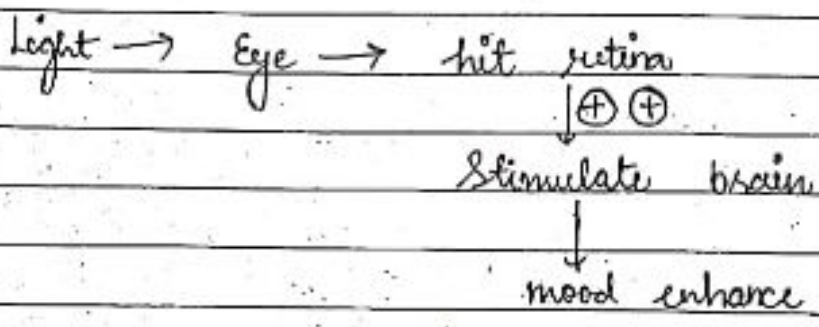 Light → Eye → hit retina
↓ ⊕ ⊕
Stimulate brain
↓
mood enhance